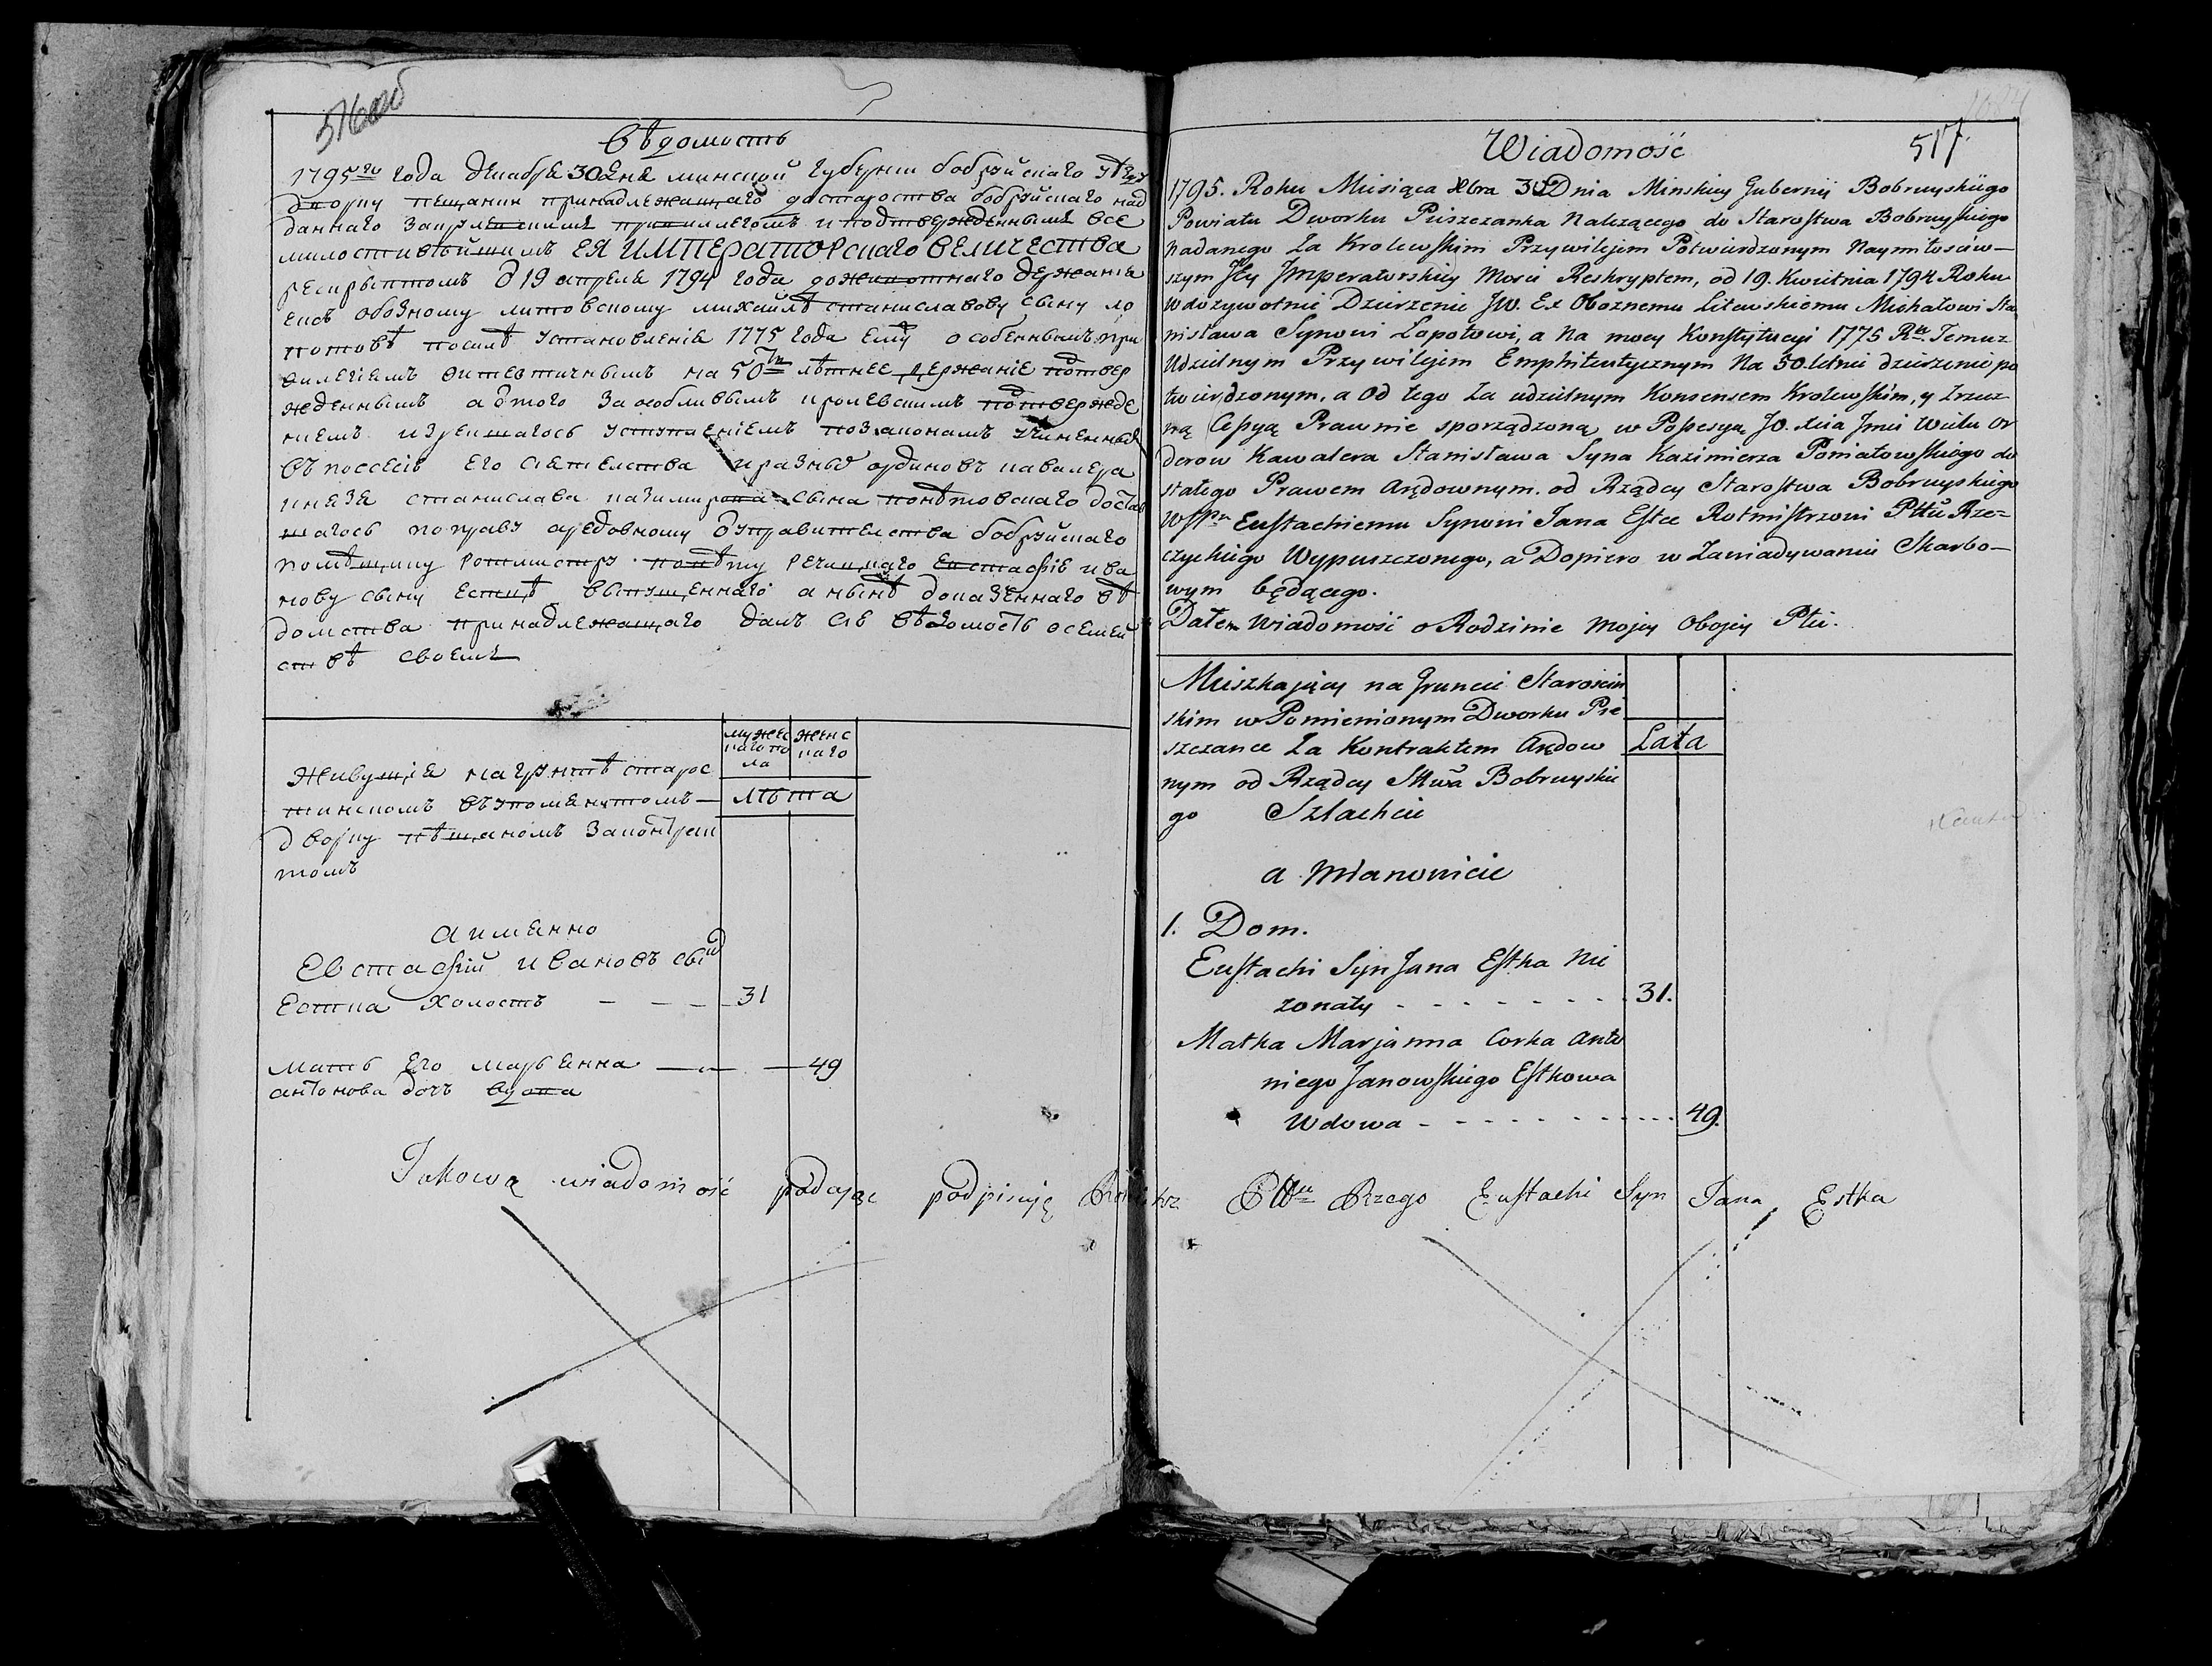 516об
Вѣдомость
1795го года декабря 30 дня минской губернїи бобруйскаго уѣзду
двору пещанки принадлежащаго до староства бобруйскаго над
даннаго за крулевскимъ привилегомъ и подтвержденнымъ все
милостивѣйшимъ ЕЯ ИМПЕРАТОРСКАГО ВЕЛИЧЕСТВА
рескриптомъ д 19 апреля 1794 года до животнаго держанія
обозному литовскому михайлѣ станиславову сыну ло
потовѣ по силѣ установленія 1775 года ему особеннымъ при
вилегіемъ на 50ти лѣтнее держаніе потвер
жденнымъ а отого за особливымъ кролевскимъ потвержде
ніемъ и зрекшагось уступленіемъ по законамъ учиненным
въ поссесіѣ Его сіятелства и разныхъ ординовъ кавалера
князя станислава казимирова сына понятовскаго достав
шагось по праву арєдовному от управителства бобруйскаго
помѣщику ротмистру повѣту речицкаго Евстафію ива
нову сыну Есткѣ выпущеннаго а нынѣ до казеннаго вѣ
домства принадлежащаго далъ сію вѣдомость о семей
ствѣ своемъ
мужес
каго по
ла
женс
каго
лѣта
Живущія на грунтѣ старос
тинскомъ въ упомянутомъ
дворку пѣщаномъ за контрак
томъ
а имянно
Евстафій ивановъ сынъ
Естка холостъ - - - 31
Мать Его марьянна — — 49
антонова дочь вдова
Jakową wiadomość podając podpisuię Rotmistrz Pttu Rzego Eustachi Syn Jana Estka
Wiadomość
517.
1795. Roku Miesiąca Xbra 30 Dnia Minskiey Gubernij Bobruyskiego
Powiatu Dworku Piszczanka Nalezącego do Starostwa Bobruyskiego
nadanego Za Krolewskim Przywilejem Potwierdzonym Naymiłosciw-
szym Jey Jmperatorskiey Mosci Reskryptem, od 19. Kwietnia 1794 Roku
w dozywotnie Dzierzenie JW. Ex Oboznemu Litewskiemu Michałowi Sta
nisława Synowi Łopotowi, a na mocy Konstytucyi 1775 Rku. Temuz
Udzielnym Przywilejem Emphiteutycznym Na 50. letnie dzierzenie po
twierdzonym, a od tego Za udzielnym Konsensem Krolewskim, y Zrzecz
ną Cessyą Prawnie sporządzoną w Possesyą JO. Xcia Jmci Wielu Or
derow Kawalera Stanisława Syna Kazimierza Poniatowskiego do
stałego Prawem Arędownym. od Rządcy Starostwa Bobruyskiego
Eustachiemu Synowi Jana Estce Rotmistrzowi Pttu Rze=
czyckiego Wypuszczonego, a Dopiero w Zawiadywaniu Skarbo-
wym będącego.
Dałem Wiadomość o Rodzinie Mojey Obojey Płci.
Mieszkający na Gruncie Staroscin
skim w Pomienionym Dworku Pie
szczance Za Kontraktem Arędow
nym od Rządcy Sttwa Bobruyskie
go Szlachcic
Lata
a Mianowicie
1. Dom.
Eustachi Syn Jana Estka Nie
zonaty - - - - - - - 31.
Matka Marjanna Corka Anto
niego Janowskiego Estkowa
Wdowa - - - - - - - 49.